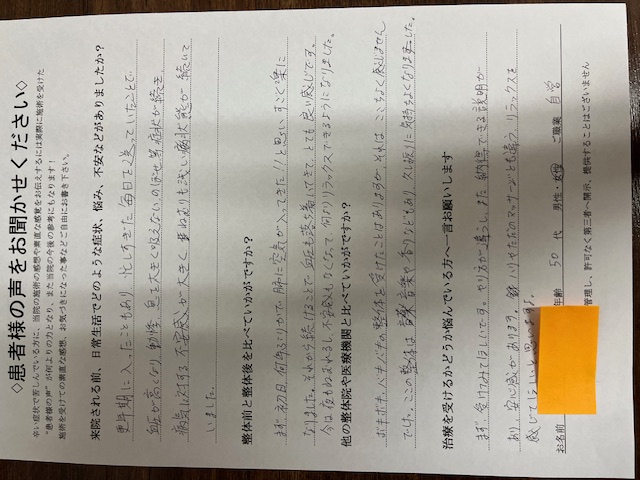 ◇患者様の声をお聞かせください◇
辛い症状で苦しんでいる方に、当院の施術の感想や素直な感覚をお伝えするには実際に施術を受けた
“患者様の声”が何よりの力となり、また当院の今後の参考にもなります!
施術を受けての素直な感想、お気づきになった事などご自由にお書き下さい。
来院される前、日常生活でどのような症状、悩み、不安などがありましたか?
更年期に入ったこともあり、忙しすぎた毎日を送っていたことで
血圧が高くなり、動悸、息を大きく吸えない、のぼせ等症状が続き、
病気に対する不安感が大きく、夜ねむりも浅い病状態が続いて
いました。
整体前と整体後を比べていかがですか?
まず、初日、何年ぶりかで肺に空気が入ってきた!!と思い、すごく楽に
なりました。それから続けることで、血圧も落ち着いてきて、とても良い感じです。
今は夜もねむれるし、不安感もなくなって、何よりリラックスできるようになりました。
他の整体院や医療機関と比べていかがですか?
ボキボキ、バキバキの整体を受けたことはありますが、それは、ここちよく感じません
でした。ここの整体は、音楽や香りなどもあり、久し振りに気持ちよくなりました。
治療を受けるかどうか悩んでいる方へ一言お願いします
まず、受けてみてほしいです。やり方が違うし、また納得できる説明が
あり、安心感があります。針、ハリやただのマッサージとも違う、リラックスを
感じてほしいと思います。
お名前 年齢 50 代 男性・女性 ご職業 自営
管理し、許可なく第三者へ開示、提供することはございません